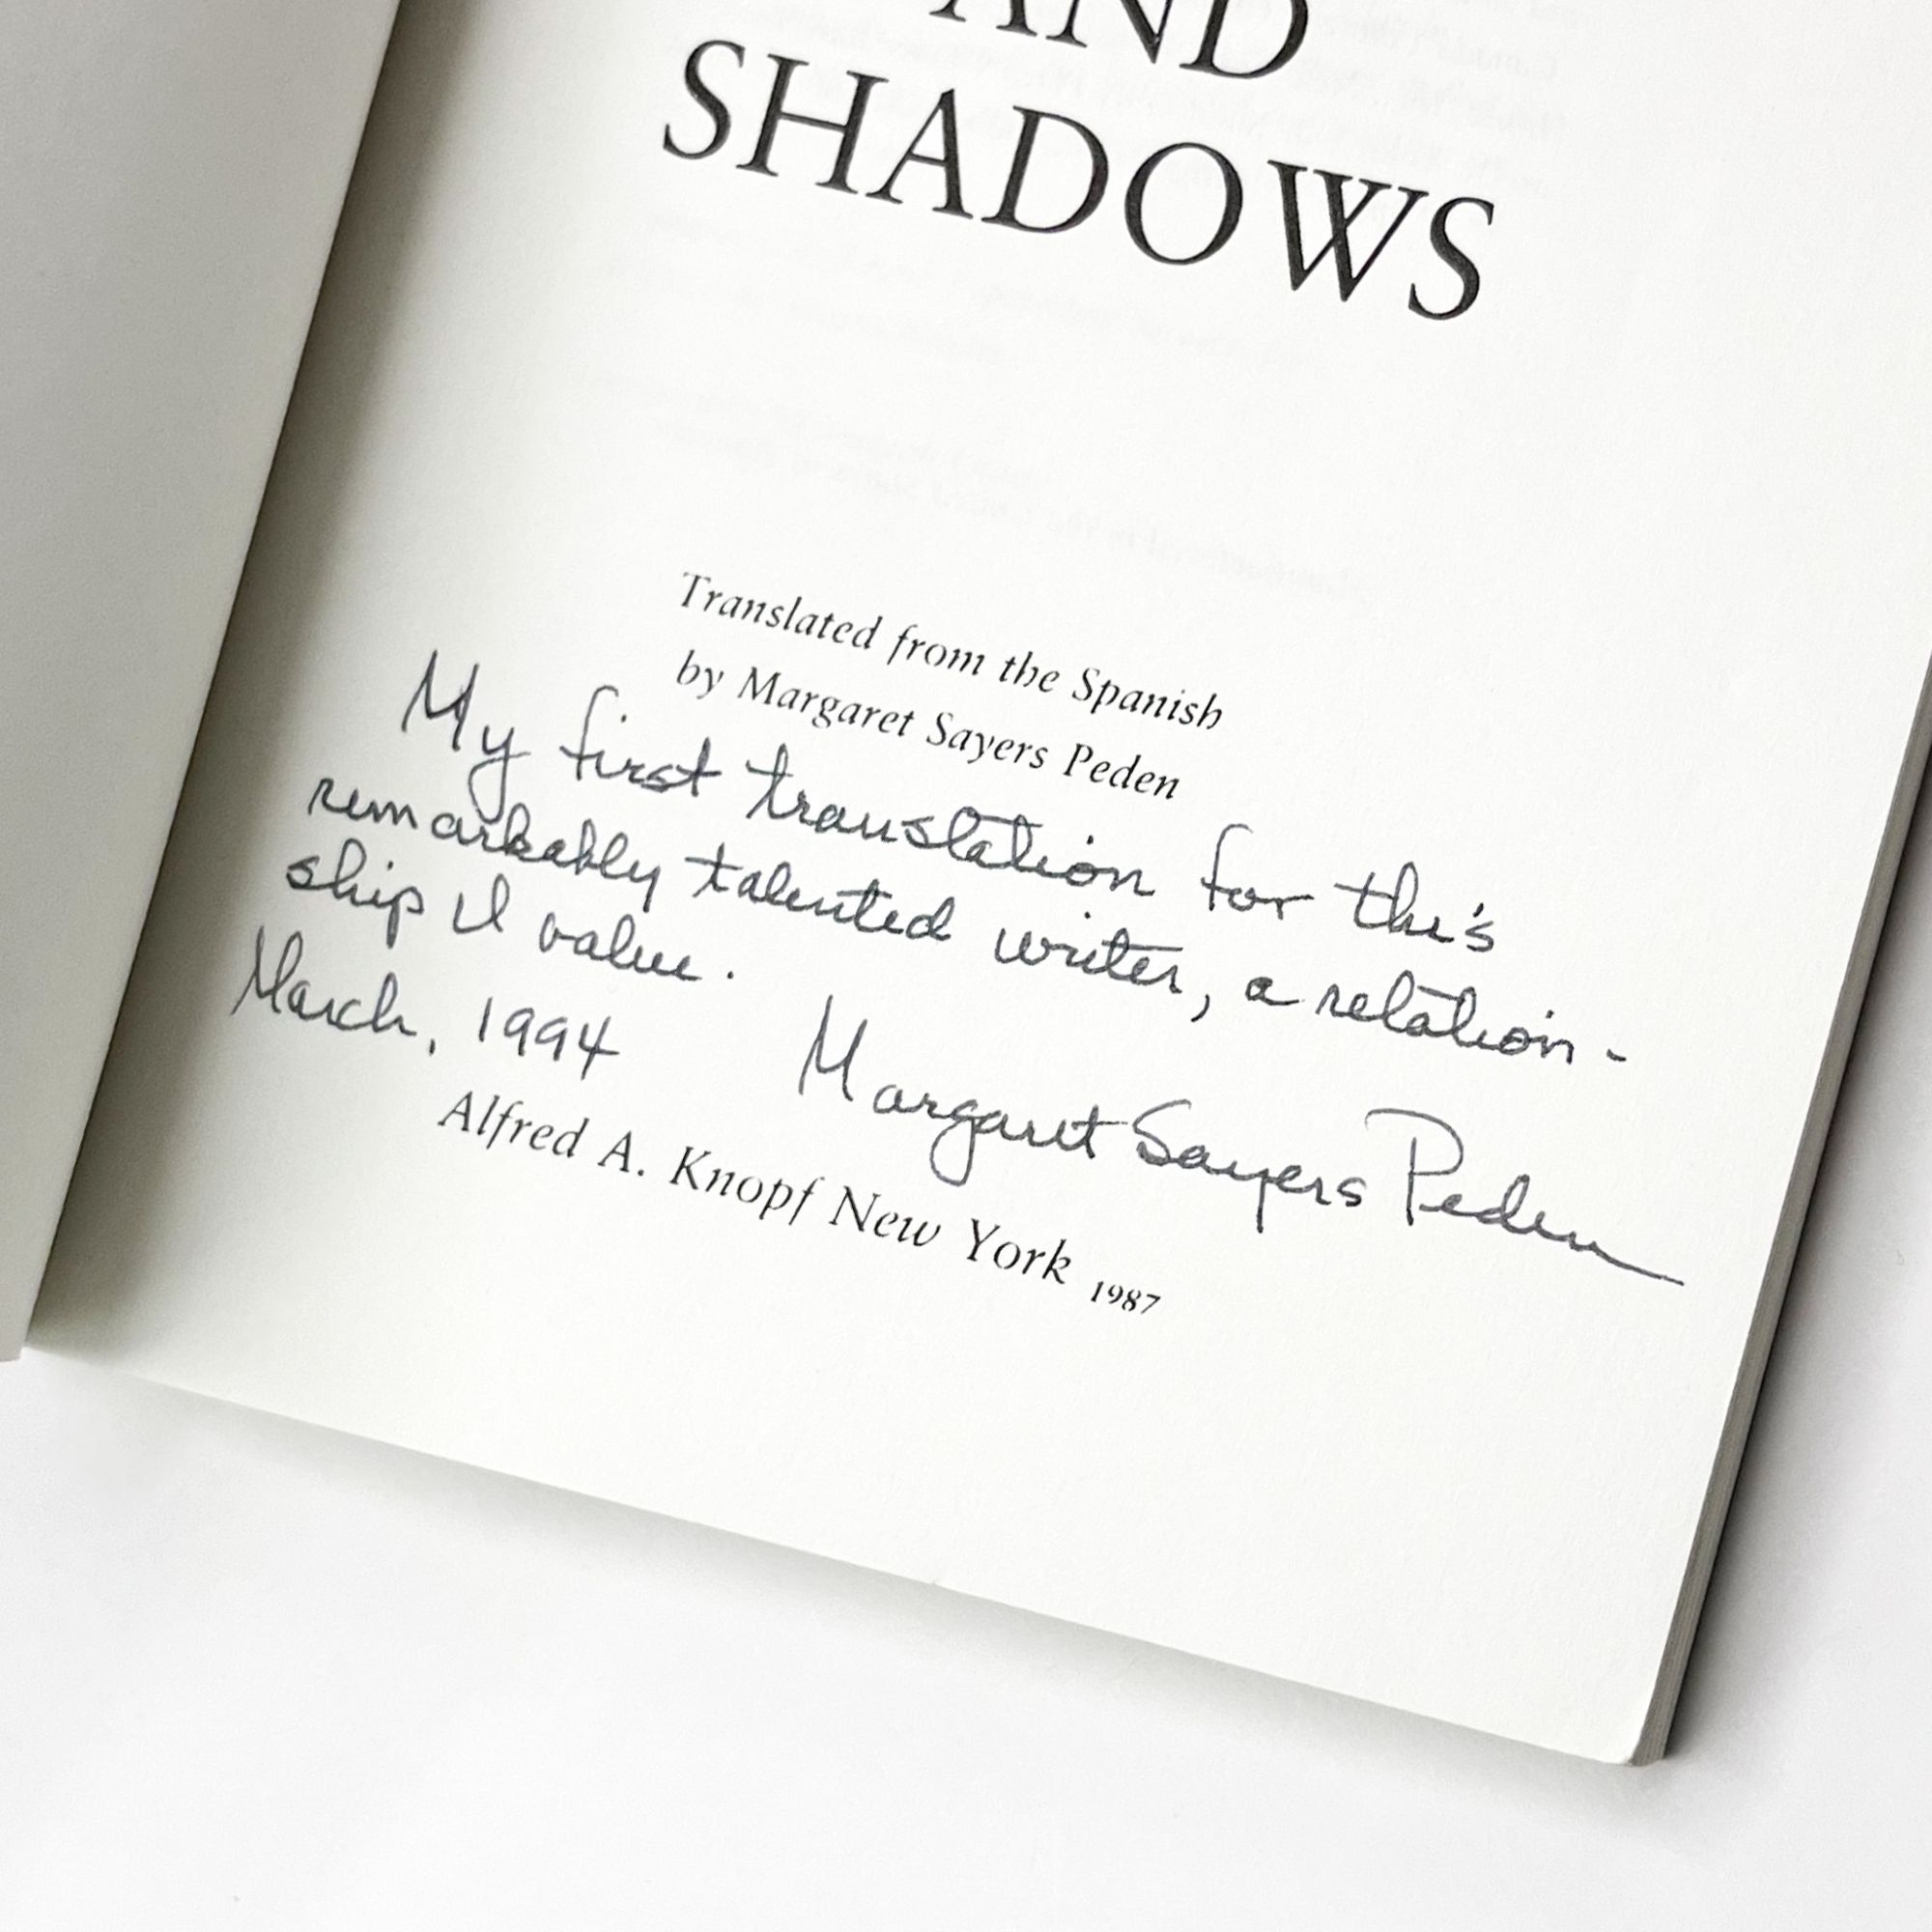 AND
SHADOWS
Translated from the Spanish
by Margaret Sayers Peden
My first translation for this
remarkably talented writer, a relation-
ship I value.
March, 1994 Margaret Sayers Peden
Alfred A. Knopf New York 1987